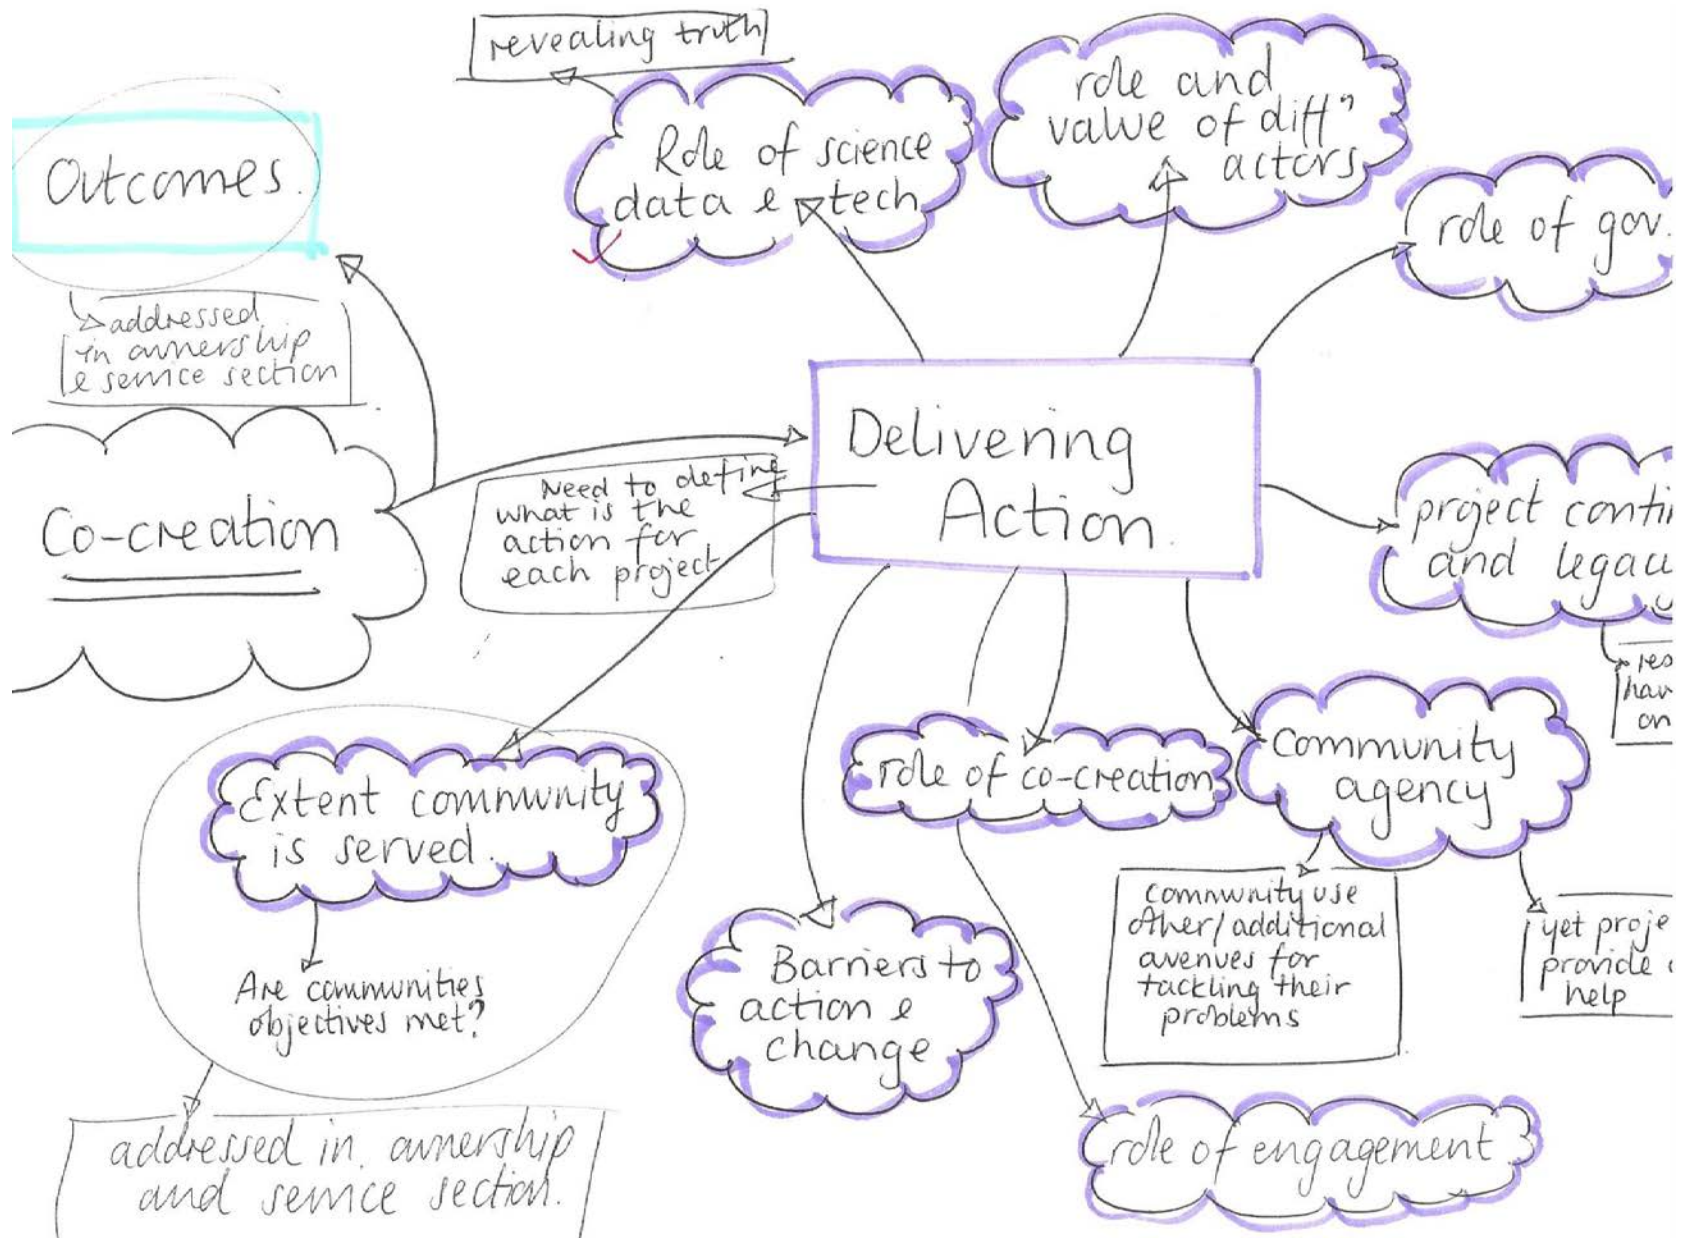 revealing truth
Role of science
data & tech
role and
value of diff"
actors
role of gov.
Outcomes.
addressed
in ownership
& service section
Co-creation
Need to define
what is the
action for
each project
Delivering
Action.
project contin
and legacy
res
hav
on
Extent community
is served.
Are communities
objectives met?
addressed in ownership
and service section.
Barriers to
action &
change
role of co-creation
Community
agency
community use
other/additional
avenues for
tackling their
problems
yet proje
provide
help
role of engagement